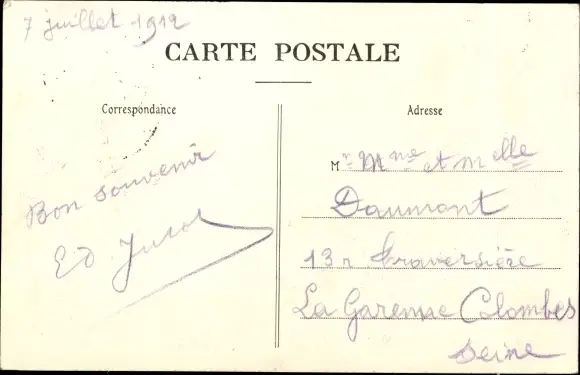 7 juillet 1912
CARTE POSTALE
Correspondance
Adresse
Mr Mme et Melle
Daumont
13 r traversière
La Garenne Colombes
Seine
Bon souvenir
Ed